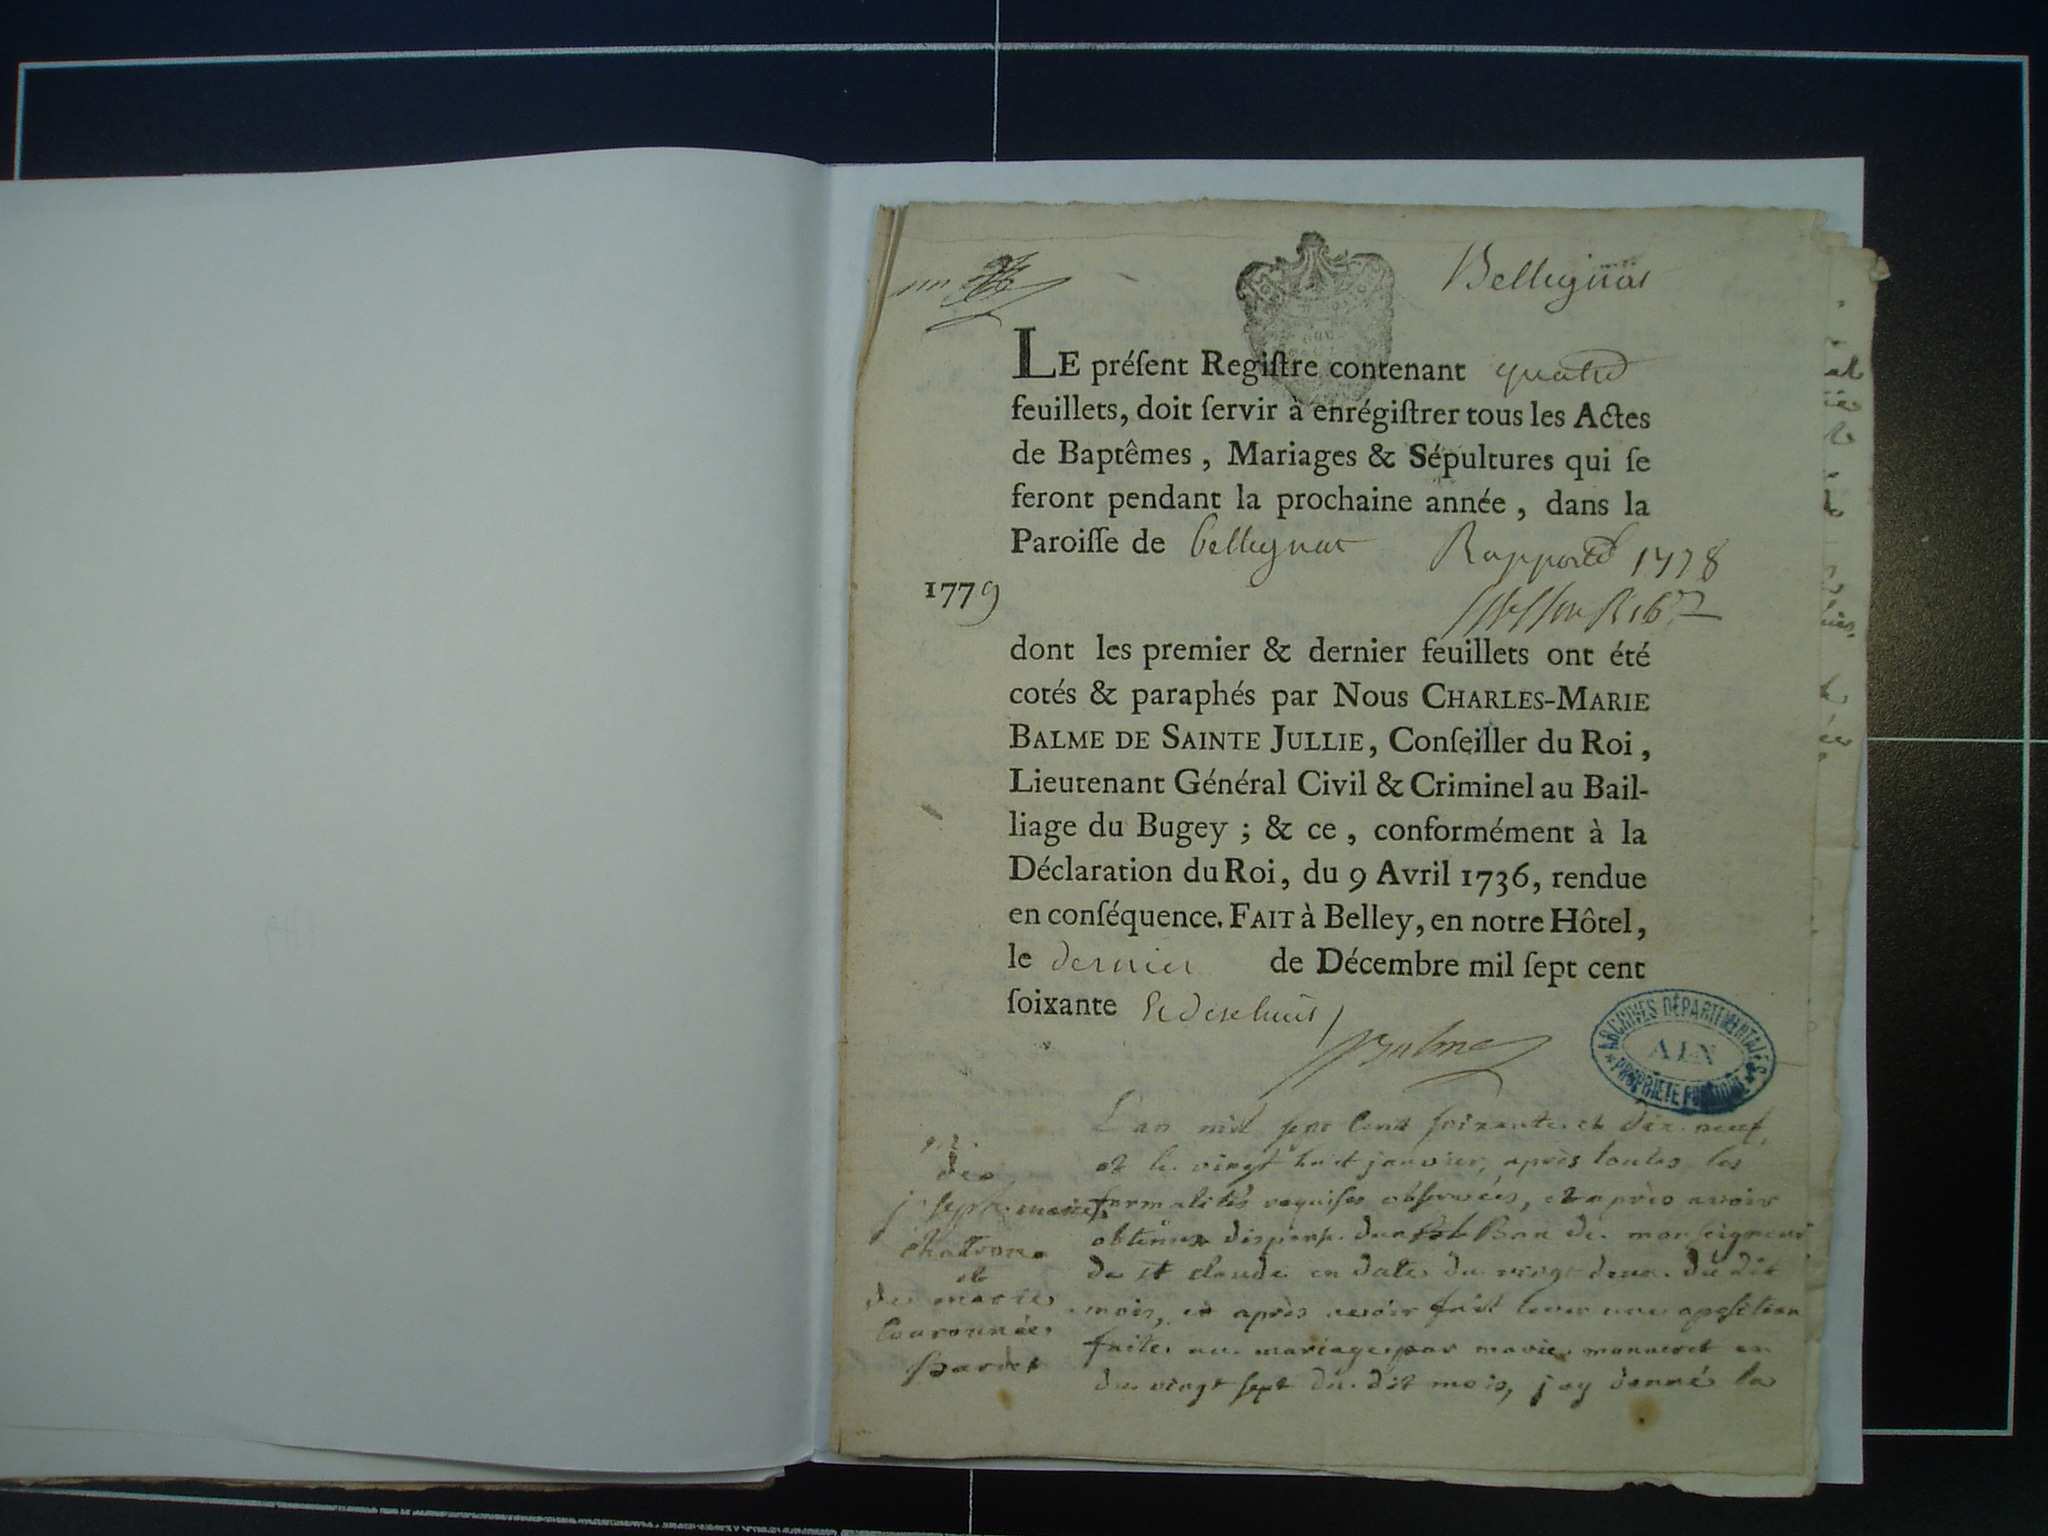 Bellignat
LE préſent Regiſtre contenant quatre
feuillets, doit ſervir à enrégiſtrer tous les Actes
de Baptêmes, Mariages & Sépultures qui ſe
feront pendant la prochaine année, dans la
Paroiſſe de bellignat Rapporté 1778
1779
dont les premier & dernier feuillets ont été
cotés & paraphés par Nous CHARLES-MARIE
BALME DE SAINTE JULLIE, Conſeiller du Roi,
Lieutenant Général Civil & Criminel au Bail-
liage du Bugey ; & ce, conformément à la
Déclaration du Roi, du 9 Avril 1736, rendue
en conſéquence. FAIT à Belley, en notre Hôtel,
le dernier de Décembre mil ſept cent
ſoixante et dixhuit
Balme
ARCHIVES DÉPARTEMENTALES
AIN
PROPRIÉTÉ PUBLIQUE
L'an mil sept cent soixante et dix neuf,
et le vingt huit janvier, après toutes les
formalités requises observées, et après avoir
obtenu dispense d'un Ban de monseigneur
de st claude en date du vingt deux du dit
mois, et après avoir fait lever une opposition
faite au mariage par marie manneret en
du vingt sept du dit mois, j'ay donné la
m.
de
joseph marie
Chatron
et
de marie
Couronnée